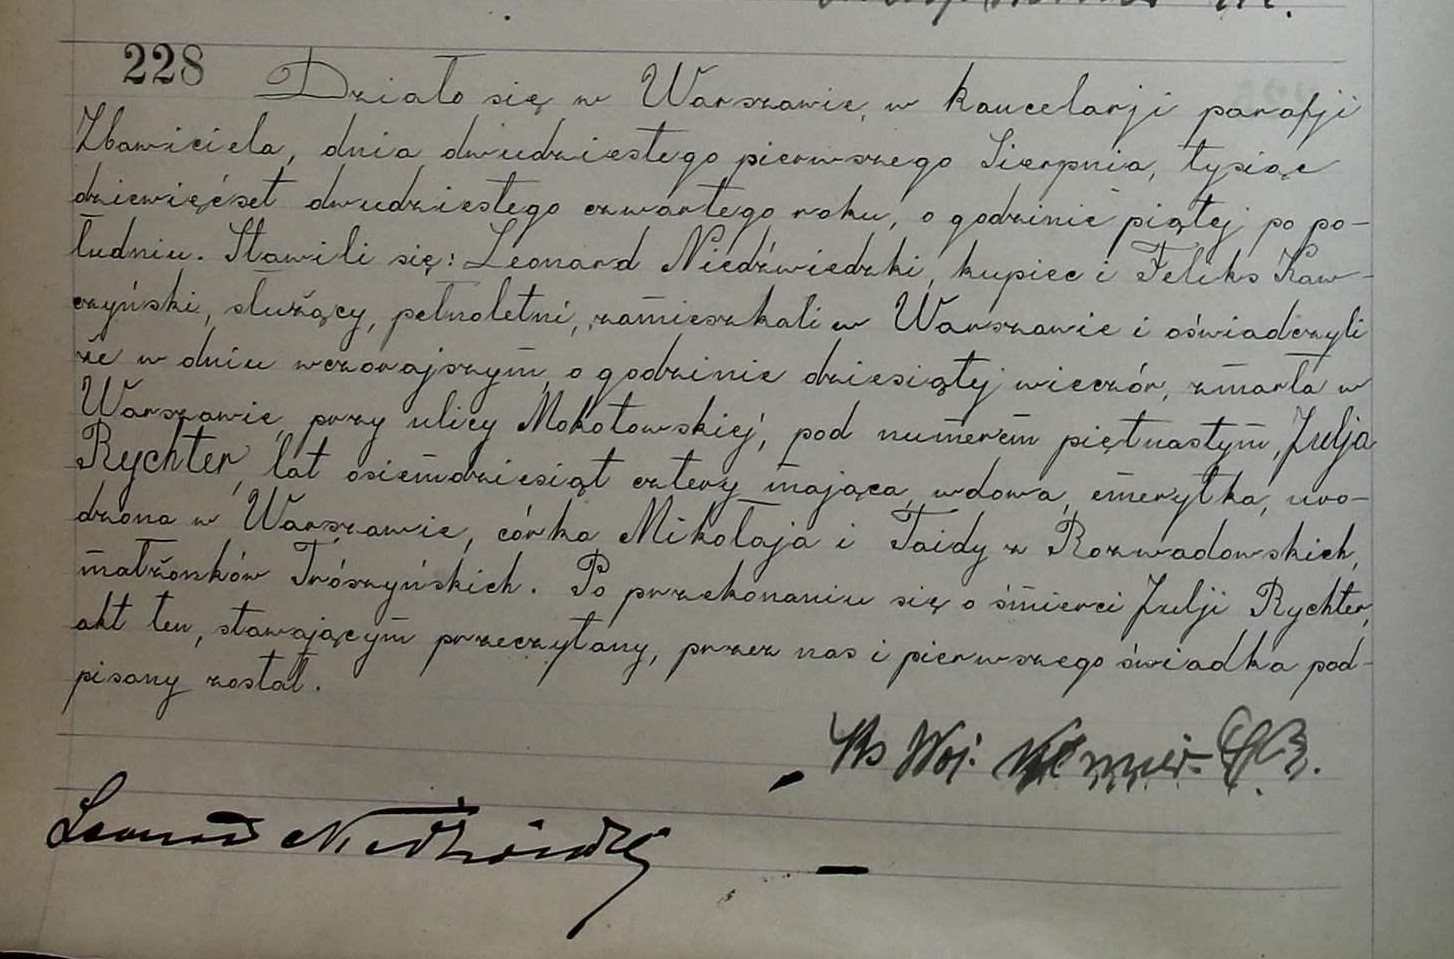 228 Działo się w Warszawie, w kancelarji parafji
Zbawiciela, dnia dwudziestego pierwszego Sierpnia, tysiąc
dziewięćset dwudziestego czwartego roku, o godzinie piątej po po-
łudniu. Stawili się: Leonard Niedźwiedzki, kupiec i Feliks Kaw-
czyński, służący, pełnoletni, zamieszkali w Warszawie i oświadczyli
że w dniu wczorajszym, o godzinie dziesiątej wieczór, zmarła w
Warszawie, przy ulicy Mokotowskiej, pod numerem piętnastym, Julja
Rychter, lat osiemdziesiąt cztery mająca, wdowa, emerytka, uro-
dzona w Warszawie, córka Mikołaja i Taidy z Rozwadowskich,
małżonków Trószyńskich. Po przekonaniu się o śmierci Julji Rychter,
akt ten, stawającym przeczytany, przez nas i pierwszego świadka pod-
pisany został.
Ks Woj.
Leonard Niedźwiedzki